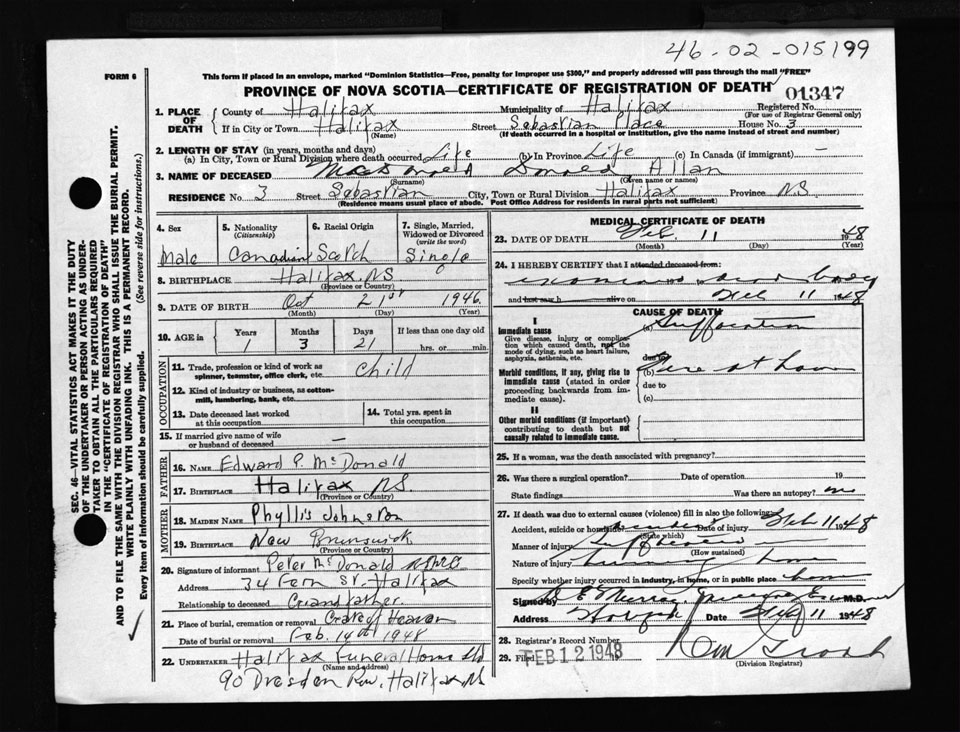 46-02-015199
FORM 6
This form if placed in an envelope, marked "Dominion Statistics—Free, penalty for improper use $300," and properly addressed will pass through the mail "FREE"
PROVINCE OF NOVA SCOTIA—CERTIFICATE OF REGISTRATION OF DEATH
01347
1. PLACE OF DEATH
County of Halifax Municipality of Halifax Registered No.
(For use of Registrar General only)
If in City or Town Halifax Street Sebastian Place House No. 3
(Name) (If death occurred in a hospital or institution, give the name instead of street and number)
2. LENGTH OF STAY (in years, months and days)
(a) In City, Town or Rural Division where death occurred Life (b) In Province Life (c) In Canada (if immigrant) —
3. NAME OF DECEASED MacDonald Donald Allan
(Surname) (Given name or names)
RESIDENCE No 3 Street Sebastian City, Town or Rural Division Halifax Province NS
(Residence means usual place of abode. Post Office Address for residents in rural parts not sufficient)
4. Sex
Male
5. Nationality
(Citizenship)
Canadian
6. Racial Origin
Scotch
7. Single, Married, Widowed or Divorced
(write the word)
Single
8. BIRTHPLACE Halifax NS
(Province or Country)
9. DATE OF BIRTH Oct 21st 1946
(Month) (Day) (Year)
10. AGE in
Years Months Days If less than one day old
1 3 21 hrs. or min.
OCCUPATION
11. Trade, profession or kind of work as spinner, teamster, office clerk, etc. Child
12. Kind of industry or business, as cotton-mill, lumbering, bank, etc.
13. Date deceased last worked at this occupation
14. Total yrs. spent in this occupation
15. If married give name of wife or husband of deceased —
FATHER
16. NAME Edward P. McDonald
17. BIRTHPLACE Halifax NS.
(Province or Country)
MOTHER
18. MAIDEN NAME Phyllis Johnston
19. BIRTHPLACE New Brunswick
(Province or Country)
20. Signature of informant Peter McDonald
Address 34 Fern St. Halifax
Relationship to deceased Grandfather
21. Place of burial, cremation or removal Gate of Heaven
Date of burial or removal Feb. 14th 1948
22. UNDERTAKER Halifax Funeral Home Ltd
(Name and address)
90 Dresden Row, Halifax NS
MEDICAL CERTIFICATE OF DEATH
23. DATE OF DEATH Feb. 11 1948
(Month) (Day) (Year)
24. I HEREBY CERTIFY that I attended deceased from:
examined dead body
and last saw h alive on Feb 11 1948
CAUSE OF DEATH
I
Immediate cause (a) Suffocation
Give disease, injury or complication which caused death, not the mode of dying, such as heart failure, asphyxia, asthenia, etc.
due to
Morbid conditions, if any, giving rise to immediate cause (stated in order proceeding backwards from immediate cause).
(b) Fire at home
due to
(c)
II
Other morbid conditions (if important) contributing to death but not causally related to immediate cause.
25. If a woman, was the death associated with pregnancy?
26. Was there a surgical operation? Date of operation 19
State findings Was there an autopsy? no
27. If death was due to external causes (violence) fill in also the following:
Accident, suicide or homicide? accident Date of injury Feb 11 1948
(State which)
Manner of injury Suffocation
(How sustained)
Nature of injury burning home
Specify whether injury occurred in industry, in home, or in public place home
Signed by E Murray M.D.
Address Halifax Date Feb 11 1948
28. Registrar's Record Number
29. Filed FEB 12 1948
(Division Registrar)
SEC. 46—VITAL STATISTICS ACT MAKES IT THE DUTY
OF THE UNDERTAKER OR PERSON ACTING AS UNDERTAKER TO OBTAIN ALL THE PARTICULARS REQUIRED
IN THE "CERTIFICATE OF REGISTRATION OF DEATH"
AND TO FILE THE SAME WITH THE DIVISION REGISTRAR WHO SHALL ISSUE THE BURIAL PERMIT.
WRITE PLAINLY WITH UNFADING INK. THIS IS A PERMANENT RECORD.
Every item of information should be carefully supplied. (See reverse side for instructions.)